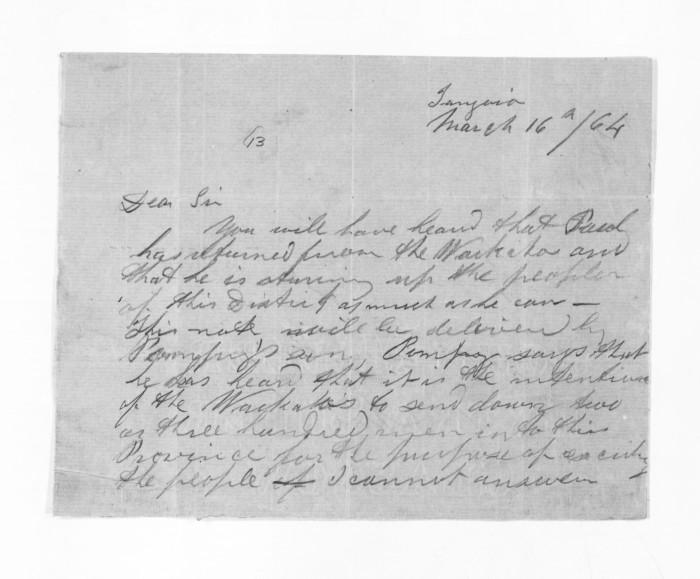 Tangoio
March 16th/64
13
Dear Sir
You will have heard that Paul
has returned from the Waikatos and
that he is stirring up the people
of this District as much as he can —
This note will be delivered by
Pompey's son, Pompey says that
he has heard that it is the intention
of the Waikatos to send down two
or three hundred men in to this
Province for the purpose of exciting
the people I cannot answer